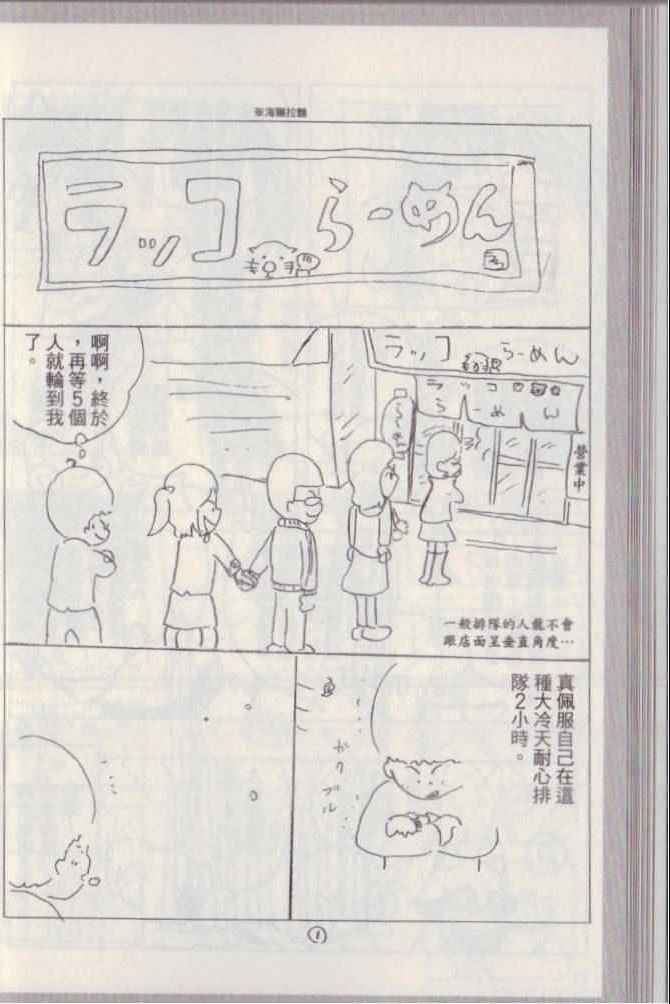 ※海獺拉麵
ラッコ らーめん
啊啊，終於
，再等5個
人就輪到我
了。
ラッコ らーめん
ラッコ
らーめん
営業中
一般排隊的人龍不會
跟店面呈垂直角度…
真佩服自己在這
種大冷天耐心排
隊2小時。
ガク
ブル
1